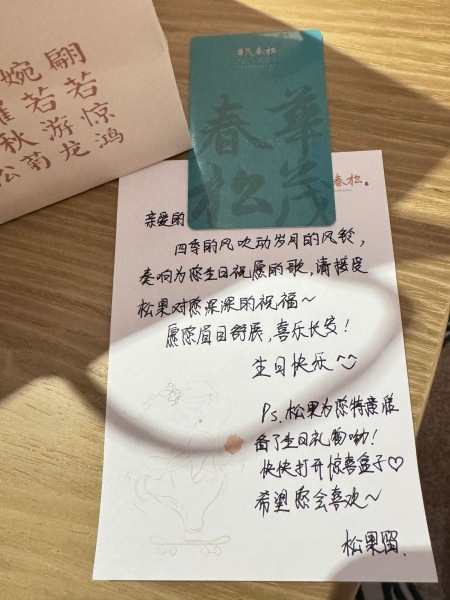 翩若惊鸿
婉若游龙
秋菊
松
華茂春松
華茂
春松
春松
亲爱的
四季的风吹动岁月的风铃，
奏响为您生日祝愿的歌，请接受
松果对您深深的祝福～
愿您眉目舒展，喜乐长安！
生日快乐
Ps. 松果为您特意准
备了生日礼物呦！
快快打开惊喜盒子♡
希望您会喜欢～
松果留.